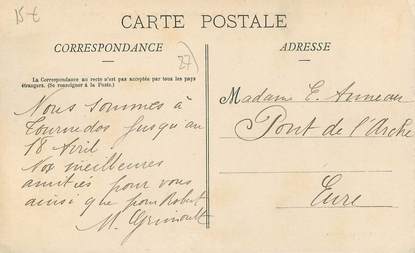 15 €
CARTE POSTALE
CORRESPONDANCE
27
ADRESSE
La Correspondance au recto n'est pas acceptée par tous les pays
étrangers. (Se renseigner à la Poste).
Nous sommes à
Tournedos jusqu'au
18 Avril.
Nos meilleures
amitiés pour vous
ainsi que pour Robert
M. Grimoult
Madame E. Anneau
Pont de l'Arche
Eure